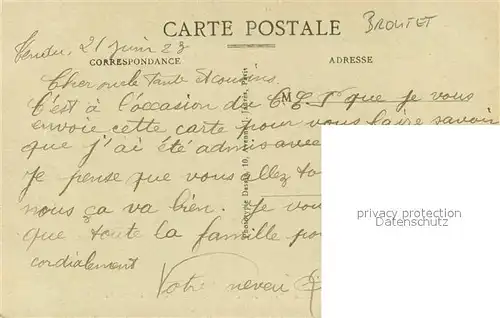 CARTE POSTALE
BROUTET
21 juin 23
CORRESPONDANCE
ADRESSE
Cher oncle Tante et cousins.
C'est à l'occasion du C.E.P que je vous
envoie cette carte pour vous faire savoir
que j'ai été admis avec
Je pense que vous allez
nous ça va bien. Je vou
que toute la famille
cordialement
Votre neveu
Phototypie
privacy protection
Datenschutz